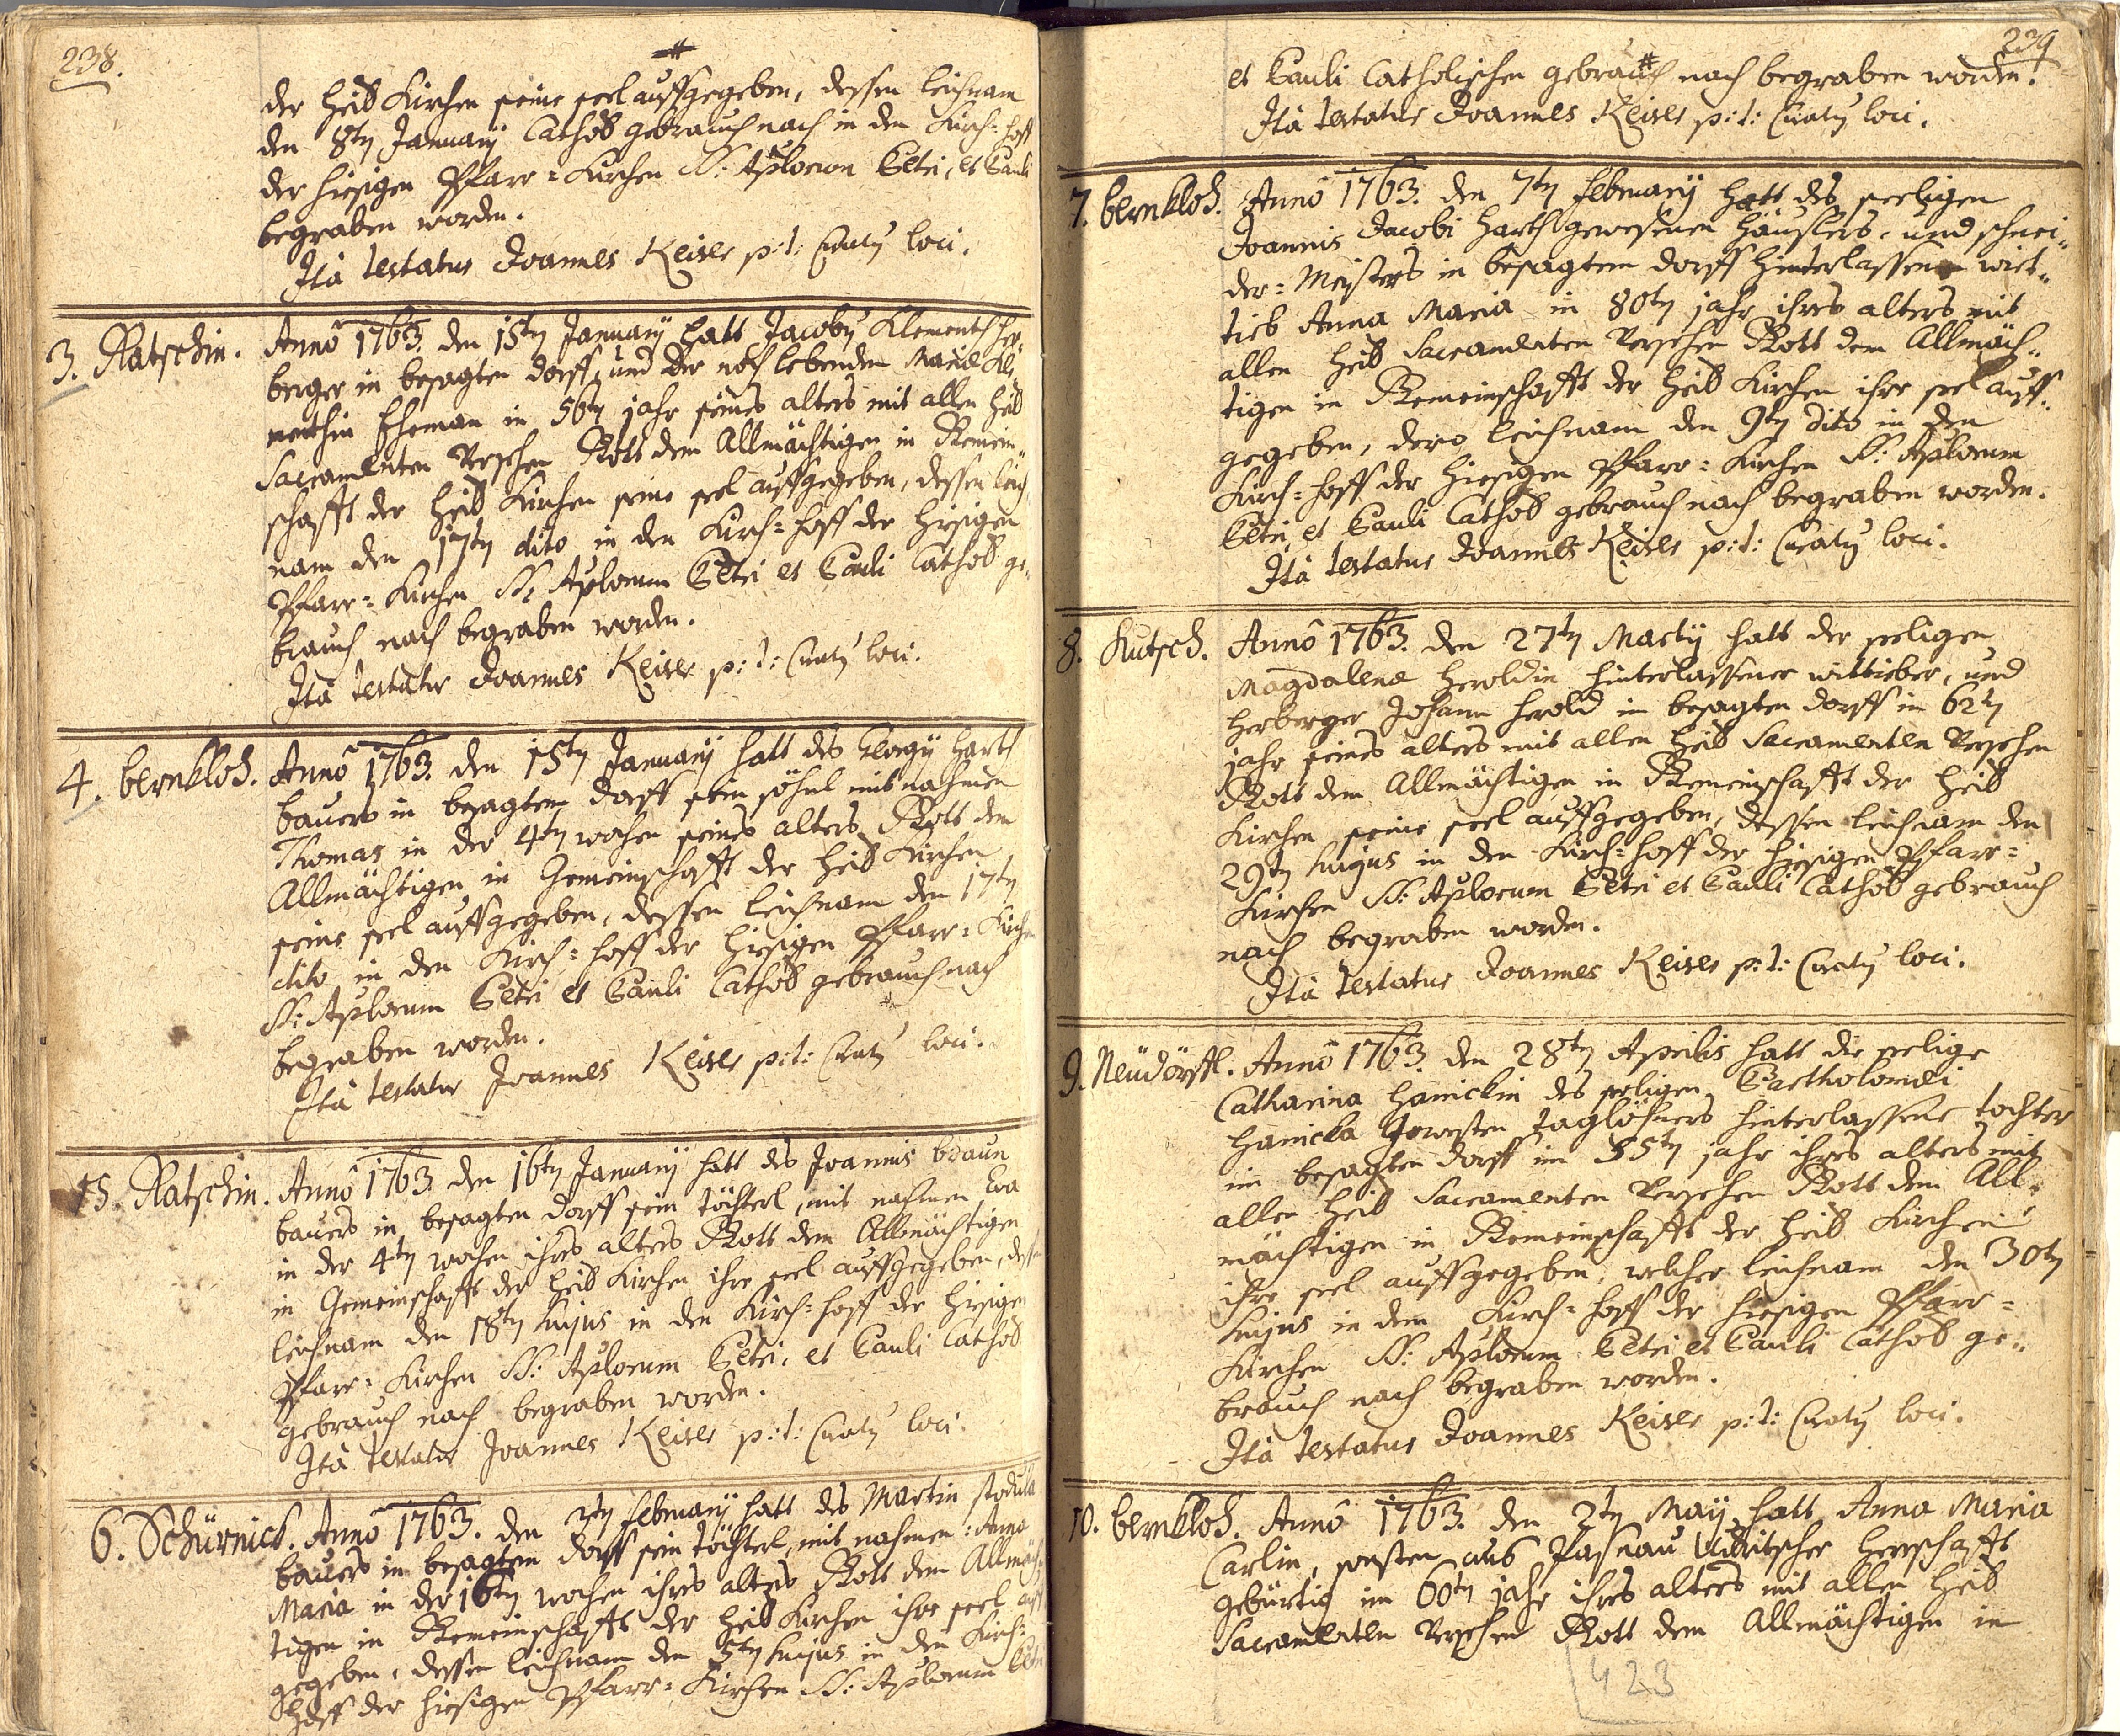 238.
der heil Kirchen seine seel auffgegeben, dessen leichnam
den 8ten January Cathol gebrauch nach in den Kirch=hoff
der hiesigen Pfarr=Kirchen SS: Aplorum Petri, et Pauli
begraben worden.
Ità testatur Joannes Keiser p:t: Curatus loci.
3. Ratschin. Annô 1763. den 15ten January hatt Jacobus Klementh her„
berger in besagten dorff, und der noch lebenden Mariæ Kle
menthin Eheman in 56ten jahr seines alters mit allen heil
Sacramenten Versehen Gott dem Allmächtigen in Gemein„
schafft der heil Kirchen seine seel auffgegeben, dessen leich„
nam den 17ten dito in den Kirch=hoff der hiesigen
Pfarr=Kirchen SS: Aplorum Petri et Pauli Cathol ge„
brauch nach begraben worden.
Ità testatur Joannes Keiser p:t: Curatus loci.
4. bernklod. Annô 1763. den 15ten January hatt des Georgy Harth
bauers in besagten dorff sein söhnl mit nahmen
Thomas in der 4ten wochen seines alters Gott dem
Allmächtigen in Gemeinschafft der heil Kirchen
seine seel auffgegeben, dessen leichnam den 17ten
dito in den Kirch=hoff der hiesigen Pfarr=Kirchen
SS: Aplorum Petri et Pauli Cathol gebrauch nach
begraben worden.
Ità testatur Joannes Keiser p:t: Curatus loci.
5. Ratschin. Annô 1763. den 16ten January hatt des Joannis braun
bauers in besagten dorff sein töchterl, mit nahmen Eva
in der 4ten wochen ihres alters Gott dem Allmächtigen
in Gemeinschafft der heil Kirchen ihre seel auffgegeben, dessen
leichnam den 18ten hujus in den Kirch=hoff der hiesigen
Pfarr=Kirchen SS: Aplorum Petri, et Pauli Cathol
gebrauch nach begraben worden.
Ità testatur Joannes Keiser p:t: Curatus loci.
6. Schürnick. Annô 1763. den 3ten February hatt des Martin stodula
bauers in besagten dorff sein töchterl, mit nahmen: Anna
Maria in der 16ten wochen ihres alters Gott dem Allmäch„
tigen in Gemeinschafft der heil Kirchen ihre seel auff
gegeben, dessen leichnam den 5ten hujus in den Kirch=
hoff der hiesigen Pfarr=Kirchen SS: Aplorum Petri
239
et Pauli Catholischen gebrauch nach begraben worden.
Ità testatur Joannes Keiser p:t: Curatus loci.
7. bernklod. Annô 1763. den 7ten February hatt des seeligen
Joannis Jacobi Harth gewesenen häuslers, und schnei„
der=Meisters in besagtem dorff hinterlassene wiet„
tieb Anna Maria in 80ten jahr ihres alters mit
allen heil Sacramenten Versehen Gott dem Allmäch„
tigen in Gemeinschafft der heil Kirchen ihre seel auff„
gegeben, dero leichnam den 9ten dito in den
Kirch=hoff der hiesigen Pfarr=Kirchen SS: Aplorum
Petri, et Pauli Cathol gebrauch nach begraben worden.
Ità testatur Joannes Keiser p:t: Curatus loci.
8. Kutsch. Annô 1763. den 27ten Marty hatt der seeligen
Magdalenæ Heroldin hinterlassener wittieber, und
herberger Johann Herold in besagten dorff in 62ten
jahr seines alters mit allen heil Sacramenten Versehen
Gott dem Allmächtigen in Gemeinschafft der heil
Kirchen seine seel auffgegeben, dessen leichnam den
29ten hujus in den Kirch=hoff der hiesigen Pfarr=
Kirchen SS: Aplorum Petri et Pauli Cathol gebrauch
nach begraben worden.
Ità testatur Joannes Keiser p:t: Curatus loci.
9. Neüdörffl. Annô 1763. den 28ten Aprilis hatt die seelige
Catharina Hanickin des seeligen Bartholomæi
Hanicka gewesten Taglöhners hinterlassene tochter
im besagten dorff im 55ten jahr ihres alters mit
allen heil Sacramenten Versehen Gott dem All„
mächtigen in Gemeinschafft der heil Kirchen
ihre seel auffgegeben, welcher leichnam den 30ten
hujus in dem Kirch=hoff der hiesigen Pfarr=
Kirchen SS: Aplorum Petri et Pauli Cathol ge„
brauch nach begraben worden.
Ità testatur Joannes Keiser p:t: Curatus loci.
10. bernklod. Annô 1763. den 2ten May hatt Anna Maria
Carlin, sonsten aus Pasnau herrschafft
gebürtig im 60ten jahr ihres alters mit allen heil
Sacramenten Versehen Gott dem Allmächtigen in
423